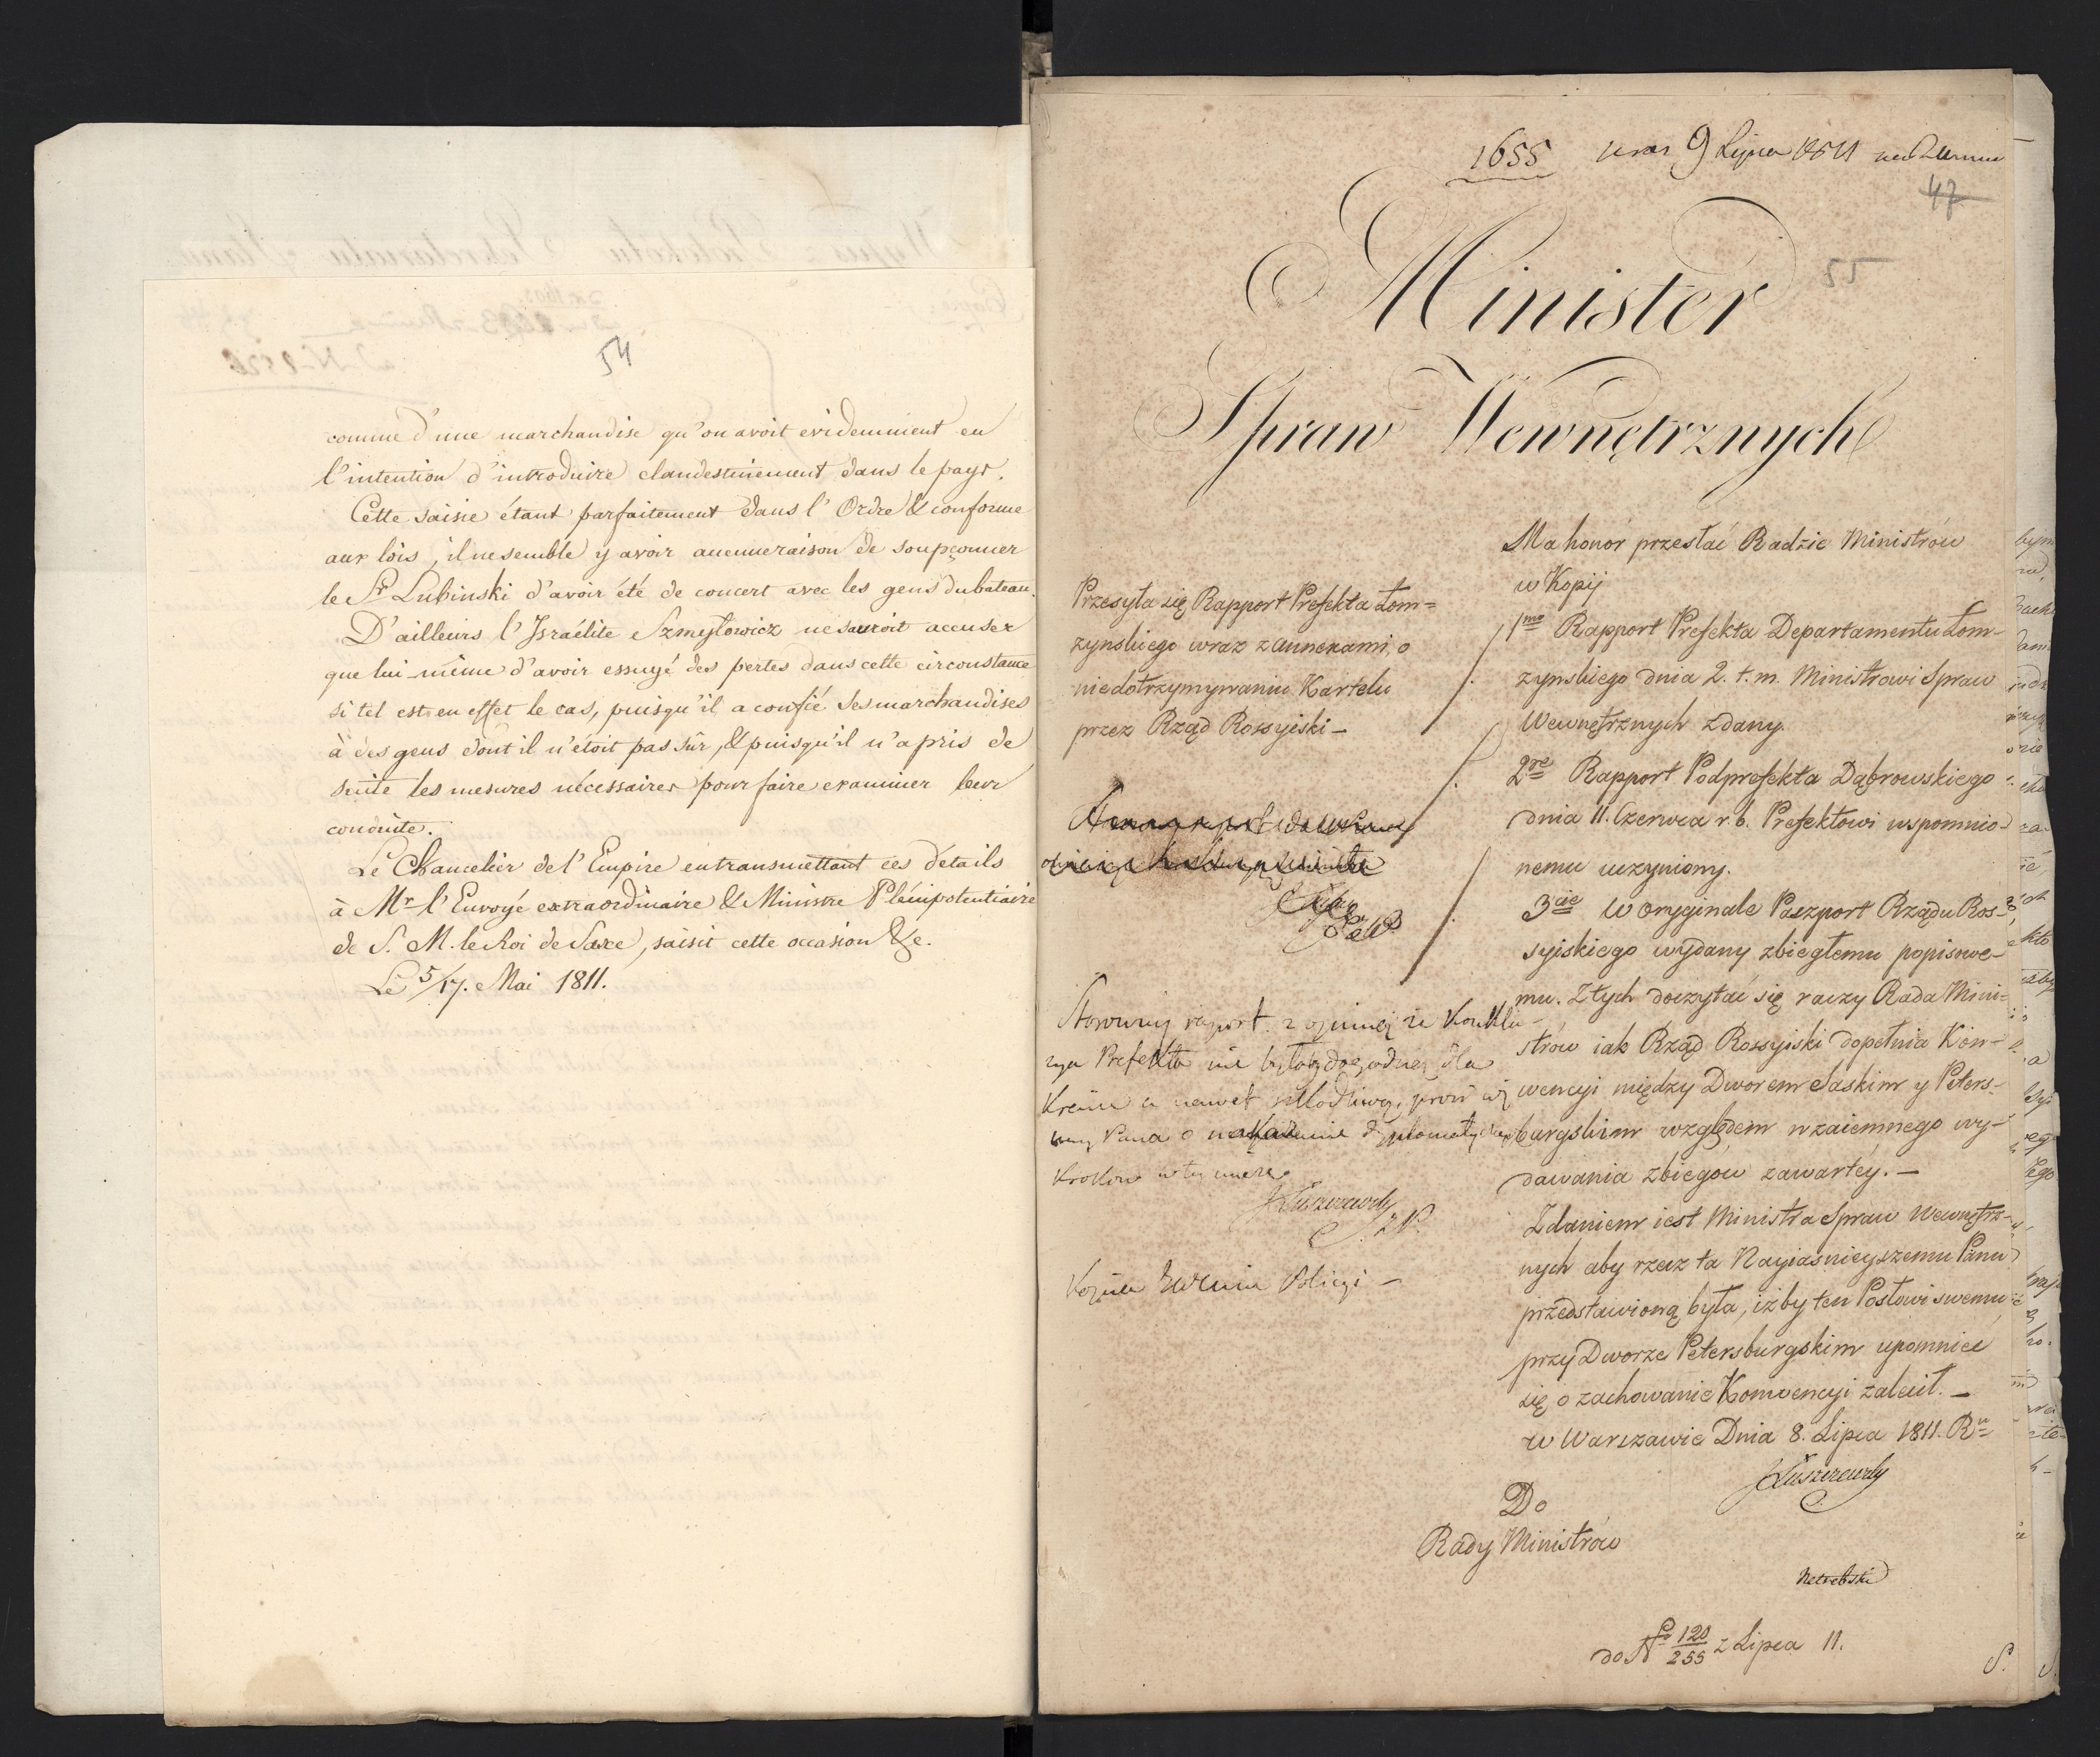 54
comme d'une marchandise qu'on avoit evidemment eu
l'intention d'introduire clandestinement dans le pays.
Cette saisie étant parfaitement dans l'Ordre & conforme
aux lois, il ne semble y avoir aucune raison de soupçonner
le Sr Lubinski d'avoir été de concert avec les gens du bateau.
D'ailleurs l'Israélite Szmeylowicz ne sauroit accuser
que lui-même d'avoir essuyé des pertes dans cette circonstance
si tel est en effet le cas, puisqu'il a confié ses marchandises
à des gens dont il n'étoit pas sûr, & puisqu'il n'a pris de
suite les mesures nécessaires pour faire examiner leur
conduite.
Le Chancelier de l'Empire en transmettant ces détails
à Mr l'Envoyé extraordinaire & Ministre Plénipotentiaire
de S. M. le Roi de Saxe, saisit cette occasion &c.
Le 5/17. Mai 1811.
1655 9 Lipca 1811
47
55
Minister
Spraw Wewnętrznych
Przesyła się Rapport Prefekta Łom=
zynskiego wraz z annexami, o
niedotrzymywaniu Kartelu
przez Rząd Rossyiski –
Stosowny raport
Prefekta nie dla
Kraiu a nawet szkodliwą,
Pana o nakazanie dyplomatycznych
Krokow w tey mierze
JŁuszczewski
Kopiia Policyi –
Ma honór przesłać Radzie Ministrów
w Kopij
1mo Rapport Prefekta Departamentu Łom-
zynskiego dnia 2. t. m. Ministrowi Spraw
Wewnętrznych zdany.
2re Rapport Podprefekta Dąbrowskiego
dnia 11. Czerwca r. b. Prefektowi wspomnio-
nemu uczyniony.
3cie W oryginale Paszport Rządu Ros-
syiskiego wydany zbiegłemu popisowe-
mu. Z tych doczytać się raczy Rada Mini=
strów iak Rząd Rossyiski dopełnia Kon-
wencyi między Dworem Saskim y Peters-
burgskim względem wzaiemnego wy-
dawania zbiegów zawartéy. –
Zdaniem iest Ministra Spraw Wewnętrz-
nych aby rzecz ta Nayiasnieyszemu Panu
przedstawioną była, iżby ten Posłowi swemu
przy Dworze Petersburgskim upomnieć
się o zachowanie Konwencyi zalecił. –
w Warszawie Dnia 8. Lipca 1811. Ru
JŁuszczewski
Do
Rady Ministrów
do No 120/255 z Lipca 11.
S.